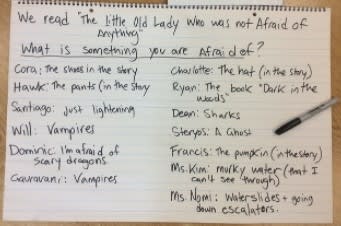 We read "The little Old Lady Who was not Afraid of
Anything"
What is something you are Afraid of?
Cora: The shoes in the story
Hawk: The pants (in the story
Santiago: Just lightening
Will: Vampires
Dominic: I'm afraid of
scary dragons
Gauravani: Vampires
Charlotte: The hat (in the story)
Ryan: The book "Dark in the
Woods"
Dean: Sharks
Sterios: A Ghost
Francis: The pumpkin (in the story)
Ms. Kim: murky water (that I
can't see through)
Ms. Nomi: Waterslides + going
down escalators.